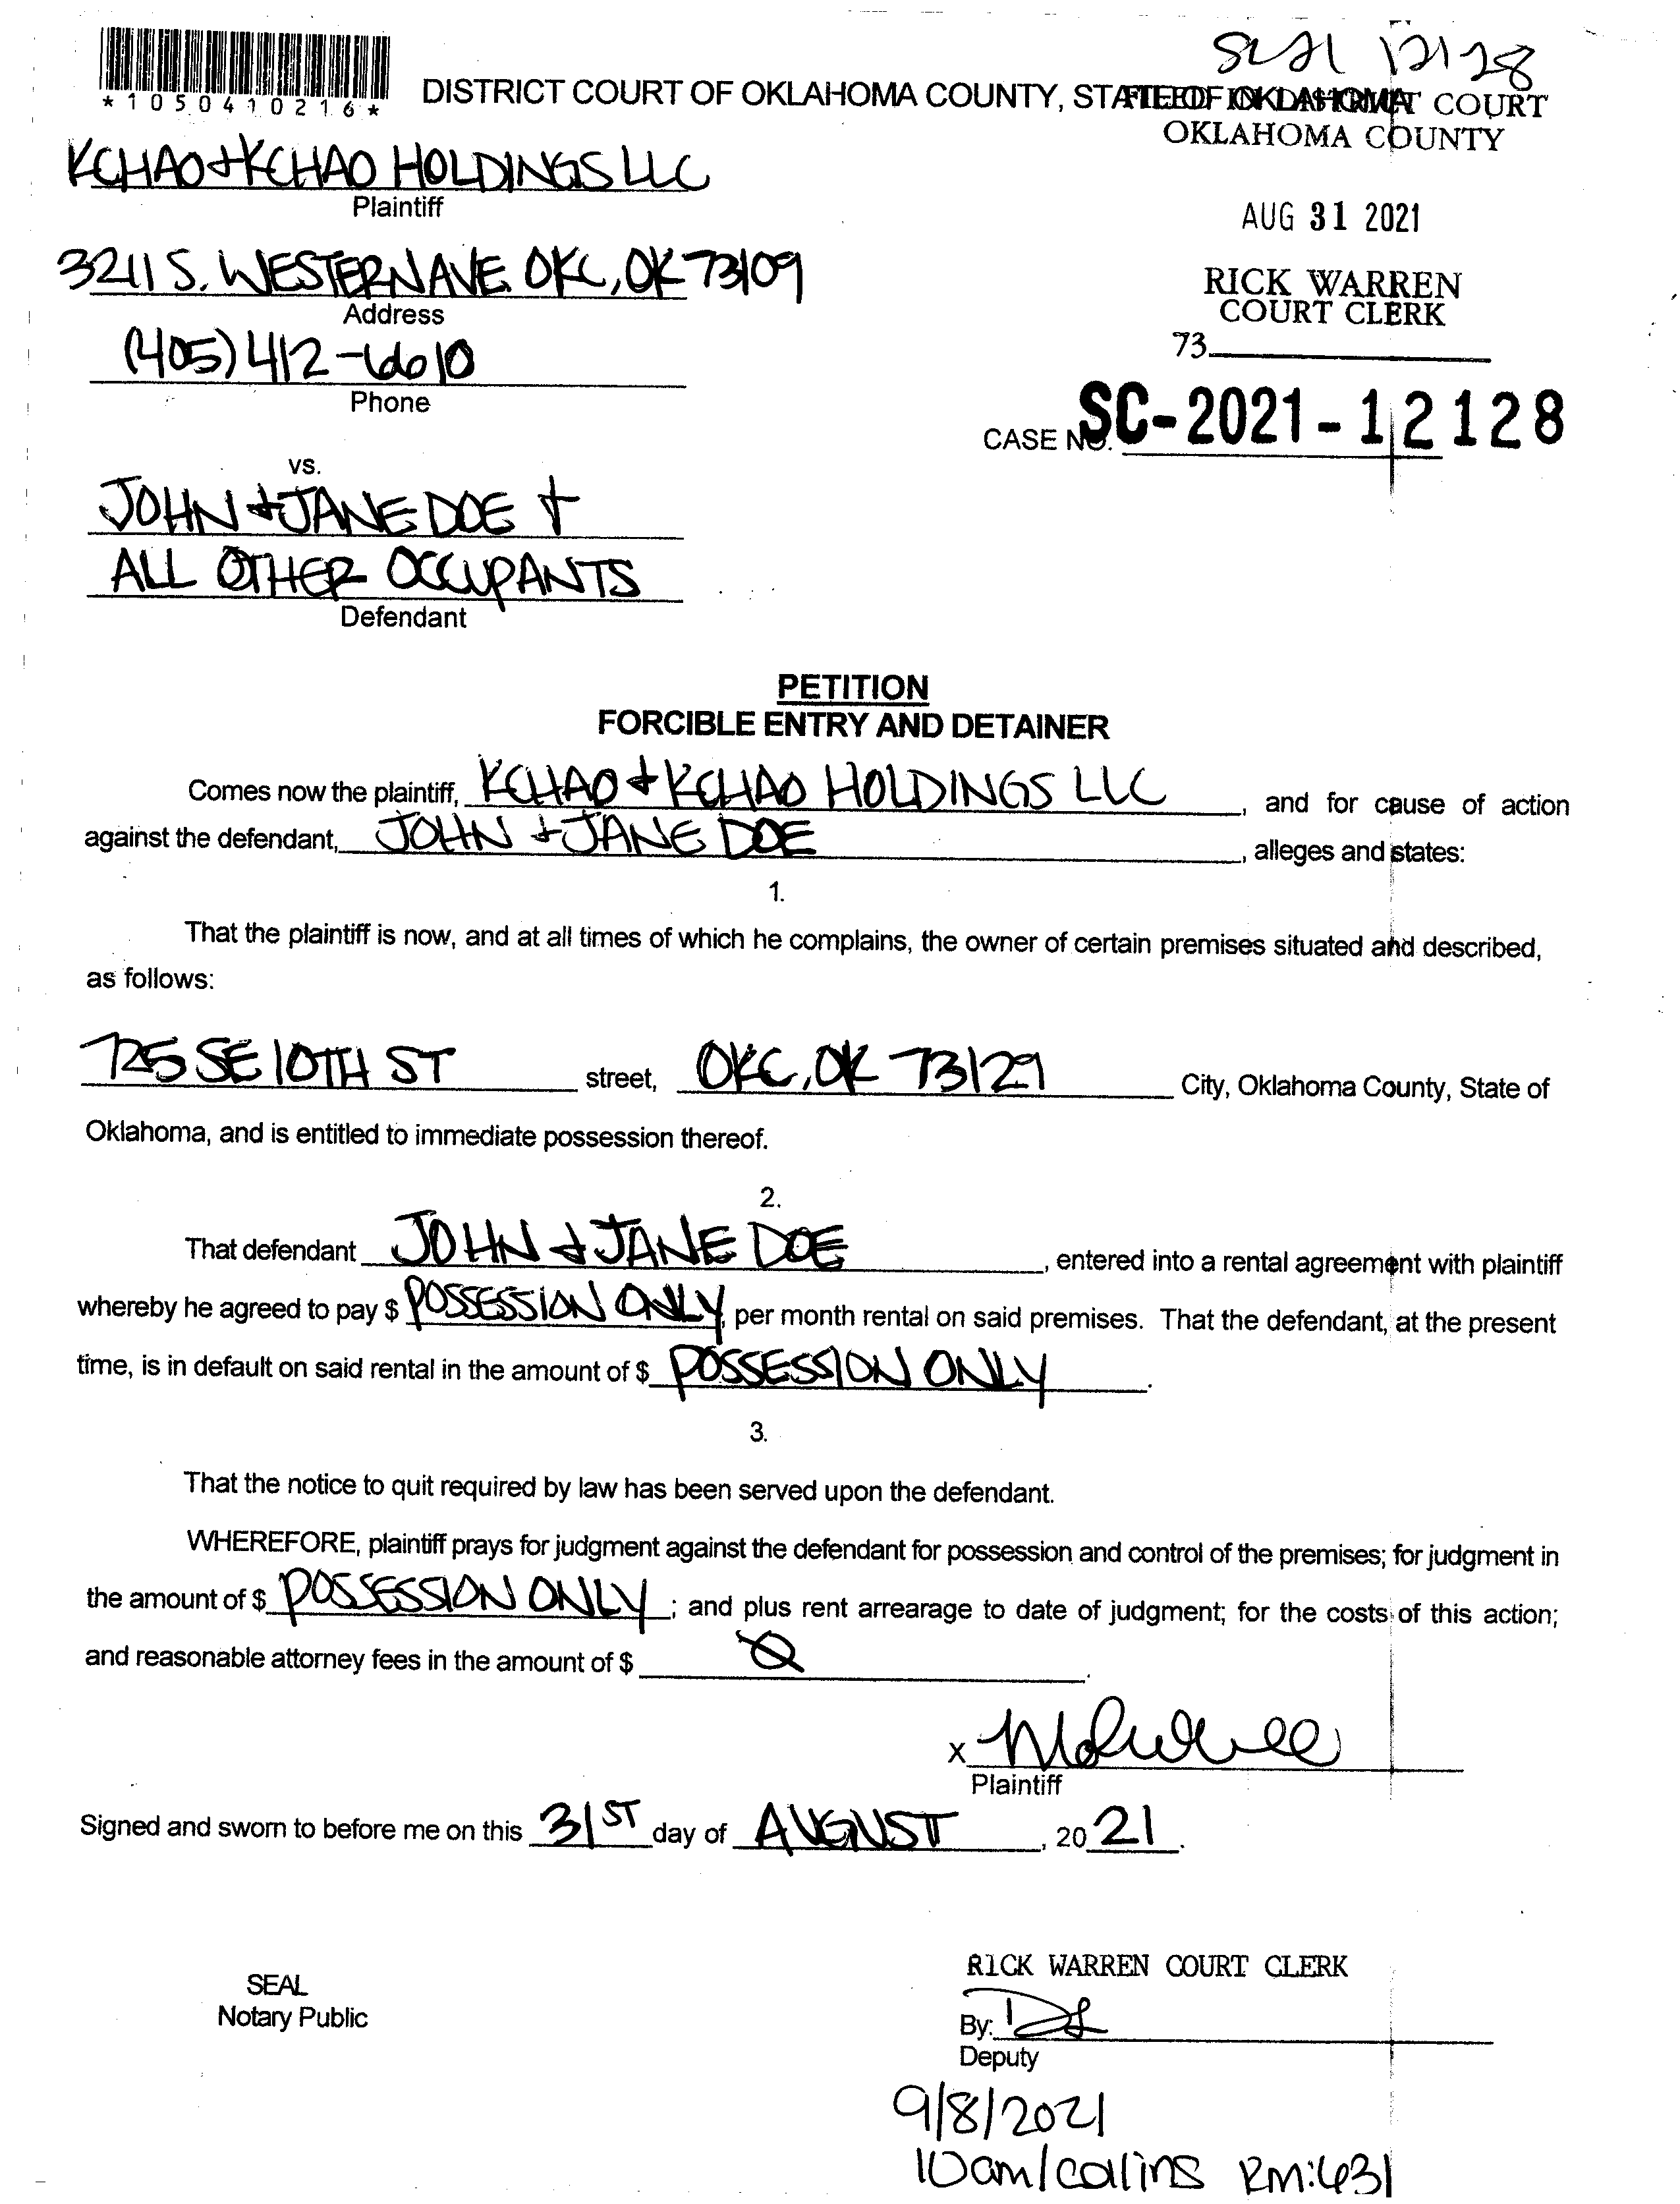 SC21 12128
*1050410216*
DISTRICT COURT OF OKLAHOMA COUNTY, STATE OF OKLAHOMA
FILED IN DISTRICT COURT
OKLAHOMA COUNTY
KCHAO + KCHAO HOLDINGS LLC
Plaintiff
AUG 31 2021
3211 S. WESTERN AVE. OKC, OK 73109
Address
RICK WARREN
COURT CLERK
(405) 412-6610
Phone
73
CASE NO. SC-2021-12128
vs.
JOHN + JANE DOE +
ALL OTHER OCCUPANTS
Defendant
PETITION
FORCIBLE ENTRY AND DETAINER
Comes now the plaintiff, KCHAO + KCHAO HOLDINGS LLC, and for cause of action
against the defendant, JOHN + JANE DOE, alleges and states:
1.
That the plaintiff is now, and at all times of which he complains, the owner of certain premises situated and described,
as follows:
725 SE 10TH ST street, OKC, OK 73129 City, Oklahoma County, State of
Oklahoma, and is entitled to immediate possession thereof.
2.
That defendant JOHN + JANE DOE, entered into a rental agreement with plaintiff
whereby he agreed to pay $ POSSESSION ONLY, per month rental on said premises. That the defendant, at the present
time, is in default on said rental in the amount of $ POSSESSION ONLY.
3.
That the notice to quit required by law has been served upon the defendant.
WHEREFORE, plaintiff prays for judgment against the defendant for possession and control of the premises; for judgment in
the amount of $ POSSESSION ONLY; and plus rent arrearage to date of judgment; for the costs of this action;
and reasonable attorney fees in the amount of $ Ø.
X
Plaintiff
Signed and sworn to before me on this 31ST day of AUGUST, 2021.
RICK WARREN COURT CLERK
SEAL
Notary Public
By:
Deputy
9/8/2021
10am/collins RM:431